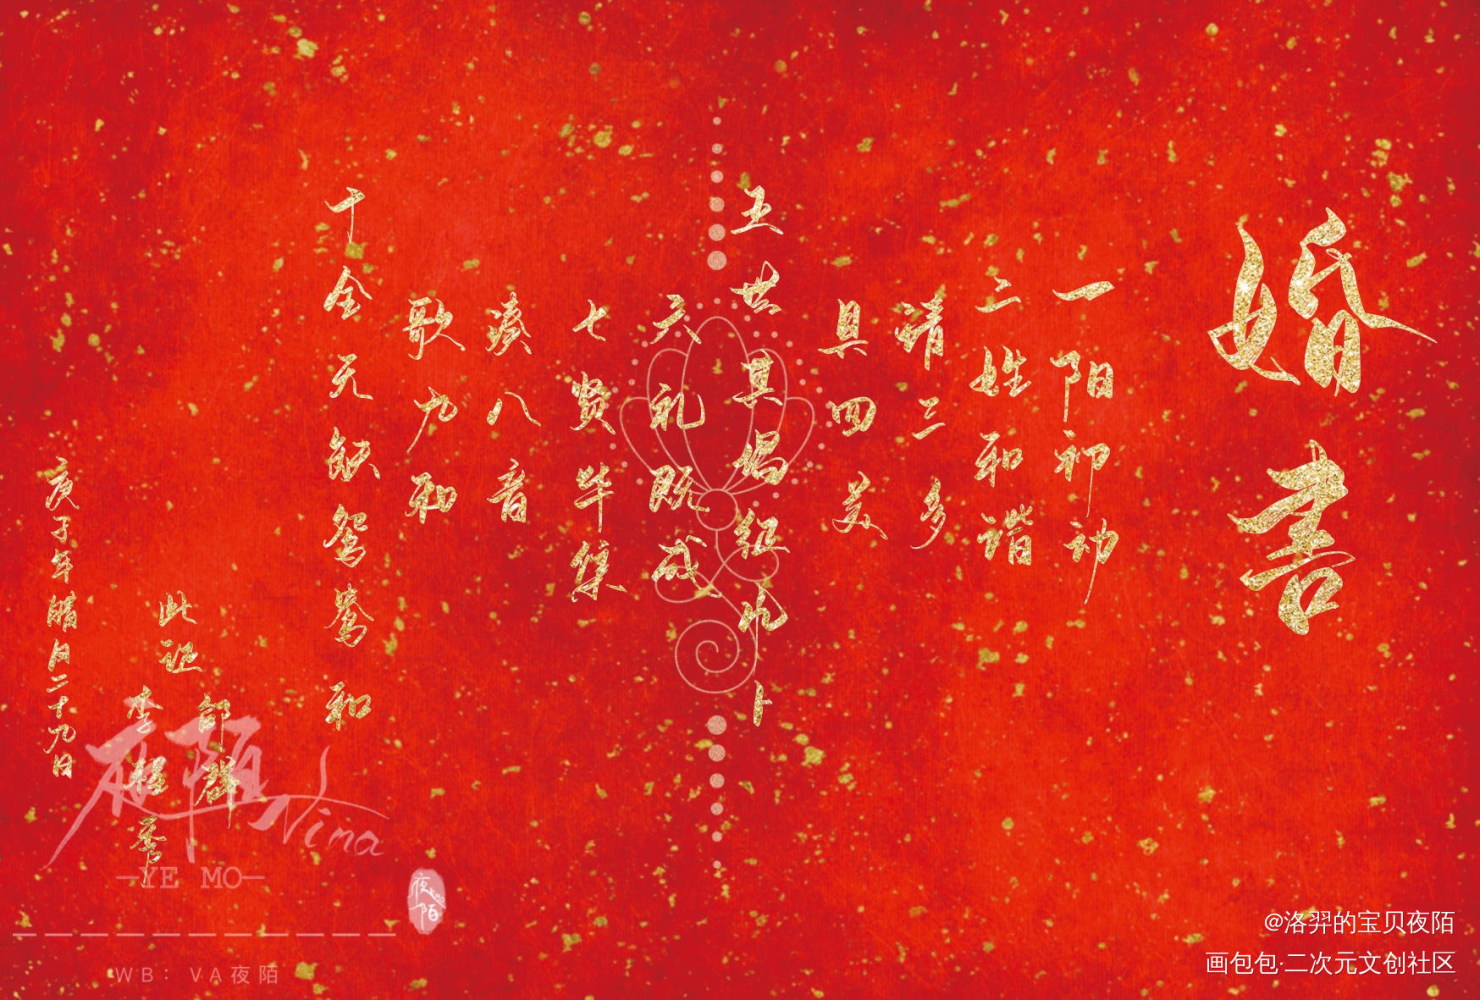 婚书
一阳初动
二姓和谐
请三多
具四美
五世其昌征凤卜
六礼既成
七贤毕集
凑八音
歌九和
十全无缺鸳鸯和
此证
李
庚子年腊月二十九日
夜陌
Nina
—YE MO—
夜陌
WB: VA夜陌
@洛羿的宝贝夜陌
画包包·二次元文创社区